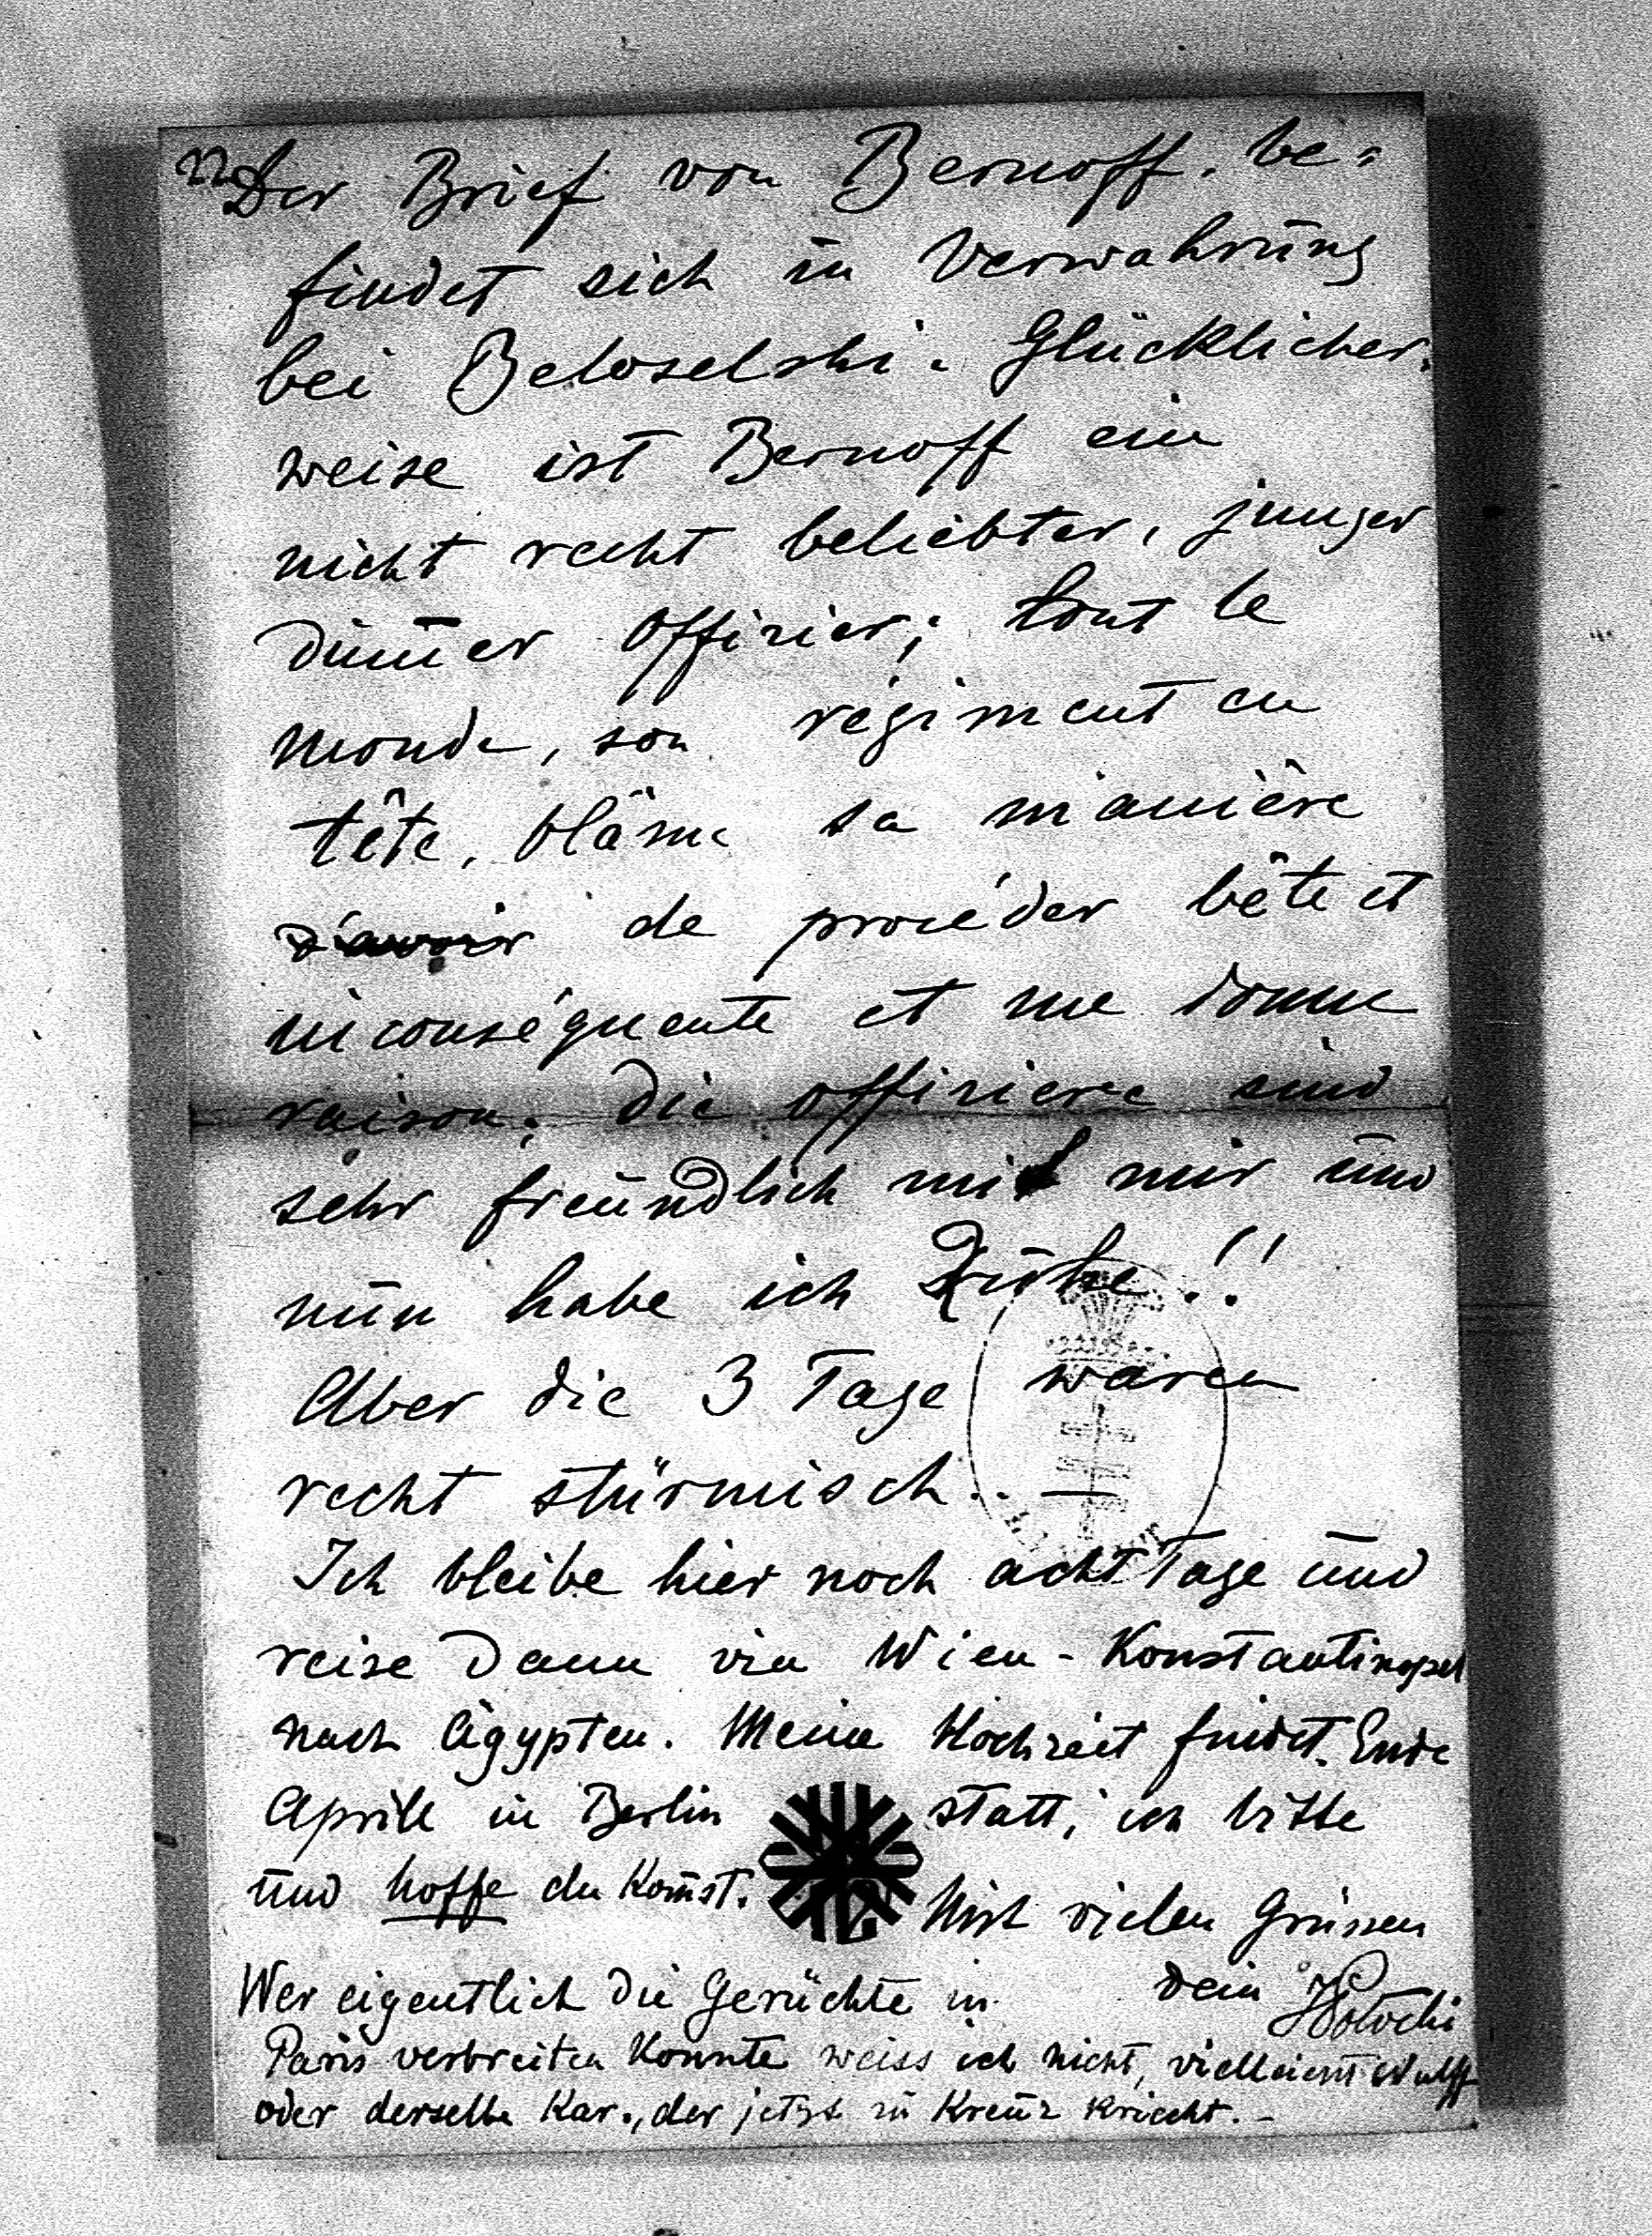 22
Der Brief von Bernoff. be=
findet sich in Verwahrung
bei Beloselski. Glücklicher.
weise ist Bernoff ein
nicht recht beliebter, junger
dum̄er Offizier; tout le
monde, son régiment en
tête, blâme sa manière
d'avoir de procéder bête et
inconséquente et me donne
raison; die offiziere sind
sehr freundlich mit mir und
nun habe ich Ruhe!!
Aber die 3 Tage waren
recht stürmisch. —
Ich bleibe hier noch acht Tage und
reise dann via Wien - Konstantinopel
nach Ägypten. Meine Hochzeit findet Ende
Aprill in Berlin statt, ich bitte
und hoffe du kom̄st. Mit vielen Grüssen
Dein
Wer eigentlich die Gerüchte in
Paris verbreiten konnte weiss ich nicht, vielleicht Wulff
oder derselbe Kar., der jetzt zu Kreuz kriecht. -